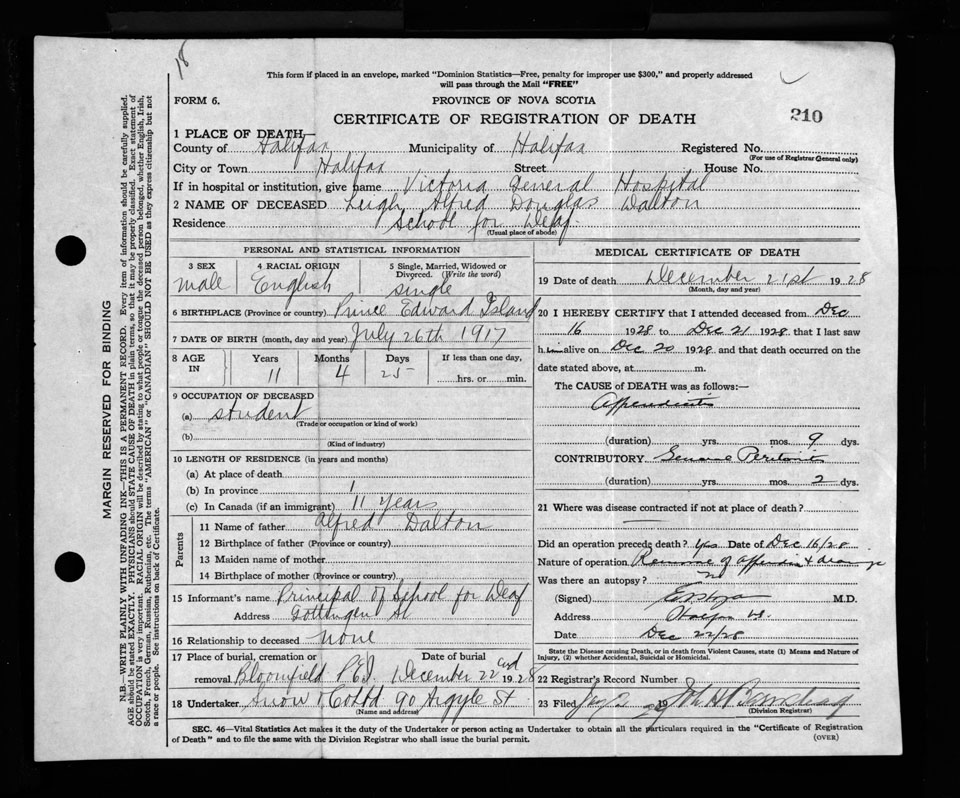 18
This form if placed in an envelope, marked "Dominion Statistics—Free, penalty for improper use $300," and properly addressed
will pass through the Mail "FREE"
FORM 6.
PROVINCE OF NOVA SCOTIA
CERTIFICATE OF REGISTRATION OF DEATH
210
1 PLACE OF DEATH—
County of Halifax Municipality of Halifax Registered No.
(For use of Registrar General only)
City or Town Halifax Street House No.
If in hospital or institution, give name Victoria General Hospital
2 NAME OF DECEASED Leigh Alfred Douglas Dalton
Residence School for Deaf.
(Usual place of abode)
PERSONAL AND STATISTICAL INFORMATION
3 SEX male
4 RACIAL ORIGIN English
5 Single, Married, Widowed or Divorced. (Write the word) single
6 BIRTHPLACE (Province or country) Prince Edward Island
7 DATE OF BIRTH (month, day and year) July 26th 1917
8 AGE IN Years 11 Months 4 Days 25 If less than one day, hrs. or min.
9 OCCUPATION OF DECEASED
(a) student
(Trade or occupation or kind of work)
(b)
(Kind of industry)
10 LENGTH OF RESIDENCE (in years and months)
(a) At place of death
(b) In province 1
(c) In Canada (if an immigrant) 11 years
Parents
11 Name of father Alfred Dalton
12 Birthplace of father (Province or country)
13 Maiden name of mother
14 Birthplace of mother (Province or country)
15 Informant's name Principal of School for Deaf
Address Gottingen St
16 Relationship to deceased none
17 Place of burial, cremation or removal Bloomfield P.E.I. Date of burial December 22nd 1928
18 Undertaker Snow & Co Ltd 90 Argyle St
(Name and address)
MEDICAL CERTIFICATE OF DEATH
19 Date of death December 21st 1928
(Month, day and year)
20 I HEREBY CERTIFY that I attended deceased from Dec
16 1928 to Dec 21 1928 that I last saw
him alive on Dec 20 1928 and that death occurred on the
date stated above, at m.
The CAUSE of DEATH was as follows:—
Appendicitis
(duration) yrs. mos. 9 dys.
CONTRIBUTORY General Peritonitis
(duration) yrs. mos. 2 dys.
21 Where was disease contracted if not at place of death?
Did an operation precede death? Yes Date of Dec 16/28
Nature of operation Removal of appendix & drainage
Was there an autopsy? no
(Signed) M.D.
Address Halifax NS
Date Dec 22/28
State the Disease causing Death, or in death from Violent Causes, state (1) Means and Nature of
Injury, (2) whether Accidental, Suicidal or Homicidal.
22 Registrar's Record Number
23 Filed Jan 2 1929
(Division Registrar)
SEC. 46—Vital Statistics Act makes it the duty of the Undertaker or person acting as Undertaker to obtain all the particulars required in the "Certificate of Registration
of Death" and to file the same with the Division Registrar who shall issue the burial permit.
(OVER)
MARGIN RESERVED FOR BINDING
N.B.—WRITE PLAINLY WITH UNFADING INK—THIS IS A PERMANENT RECORD. Every item of information should be carefully supplied.
AGE should be stated EXACTLY. PHYSICIANS should STATE CAUSE OF DEATH in plain terms, so that it may be properly classified. Exact statement of
OCCUPATION is very important. RACIAL ORIGIN will be described by stating to what people or tongue the deceased person belonged, whether English, Irish,
Scotch, French, German, Russian, Ruthenian, etc. The terms "AMERICAN" or "CANADIAN" SHOULD NOT BE USED as they express citizenship but not
a race or people. See instructions on back of Certificate.